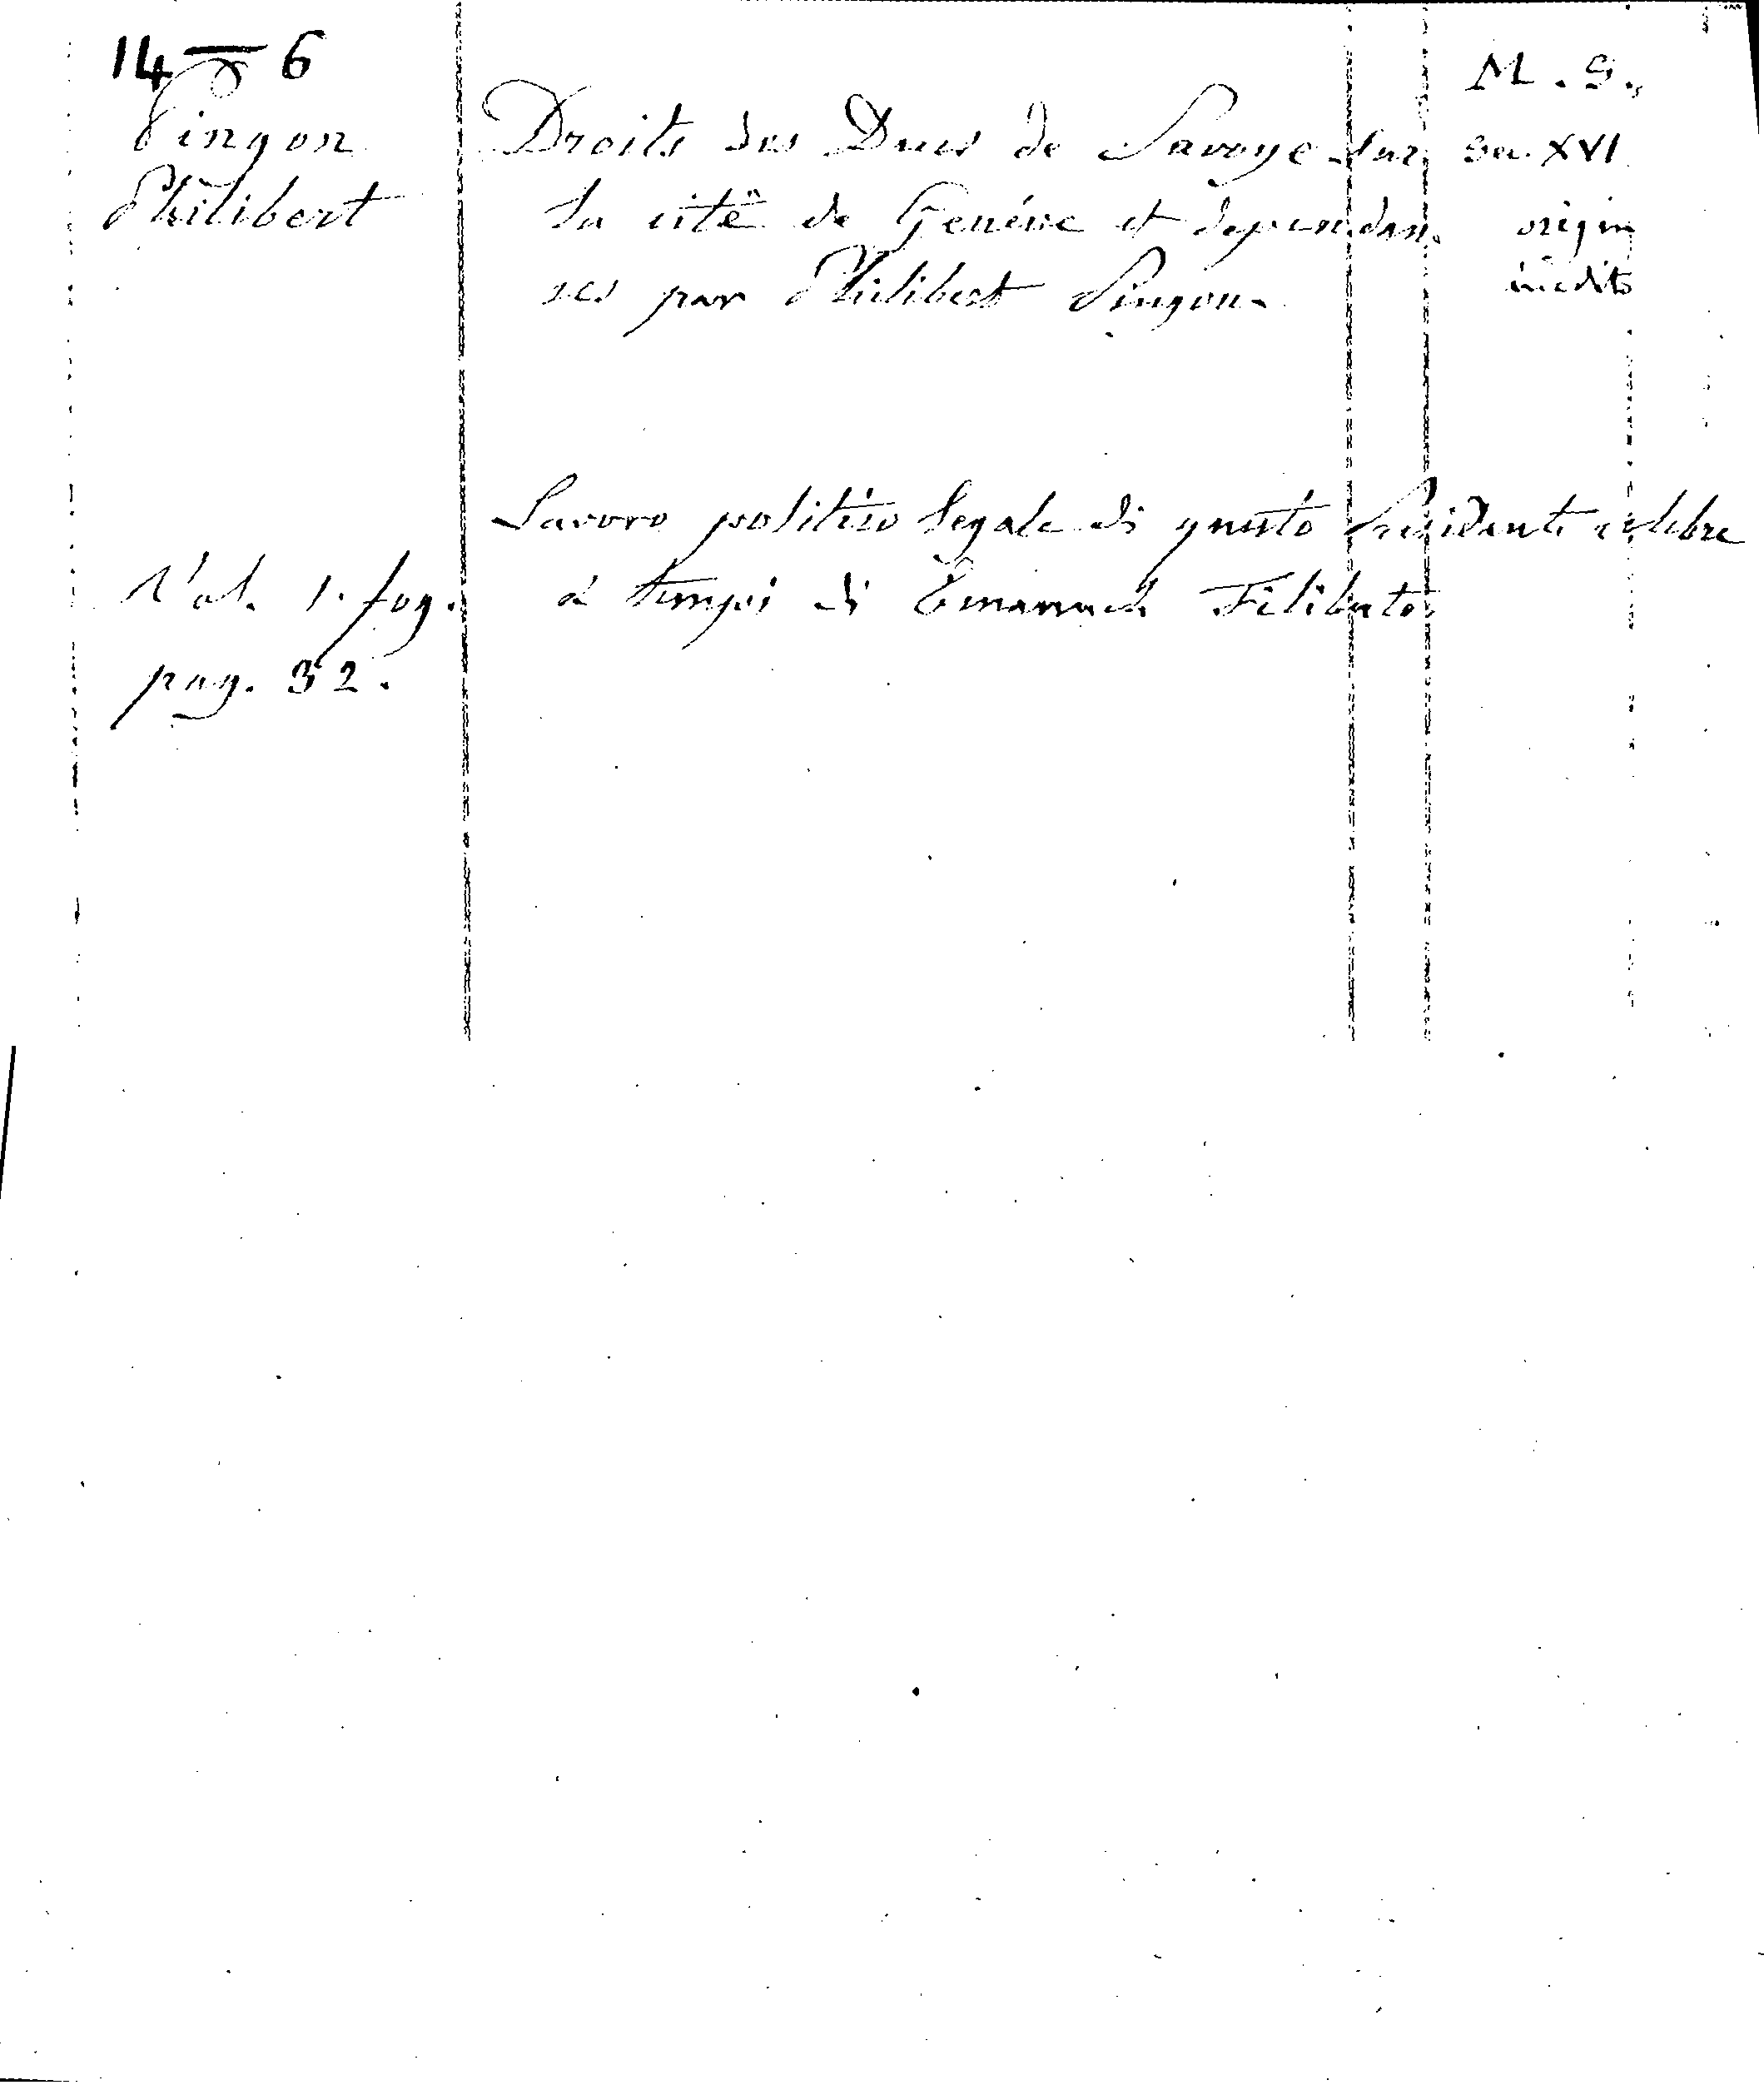 14 — 6
Pingon
Philibert
Droits des Ducs de Savoye sur
la citê de Genéve et dependan
ces par Philibert Pingon.
M. S.
Sec. XVI
origin
inedito
Lavoro politico legale di questo Presidente celebre
a tempi di Emanuele Filiberto
Vol. 1. fog.
pag. 32.